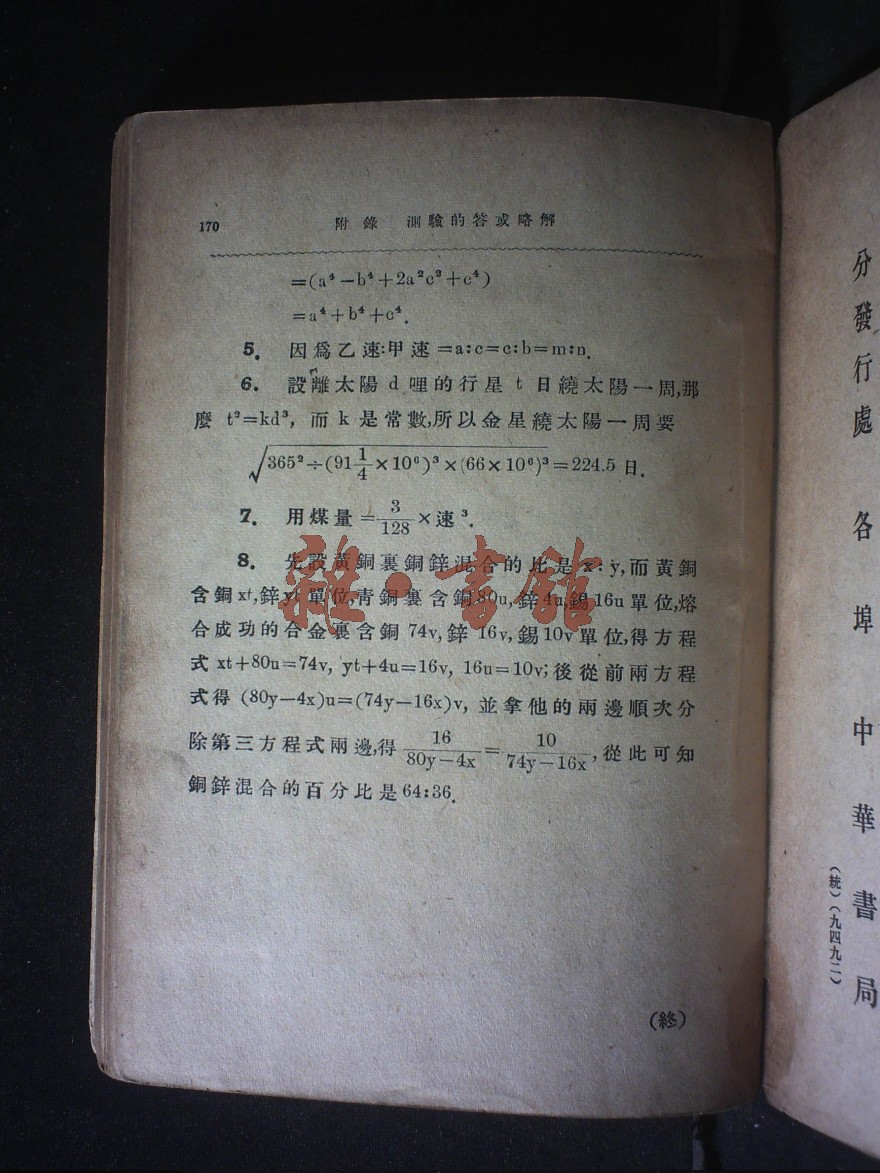 170 附錄 測驗的答或略解
=(a⁴−b⁴+2a²c²+c⁴)
=a⁴+b⁴+c⁴.
5. 因爲乙速:甲速=a:c=c:b=m:n.
6. 設離太陽 d 哩的行星 t 日繞太陽一周,那
麼 t²=kd³, 而 k 是常數,所以金星繞太陽一周要
√365²÷(91 1/4×10⁶)³×(66×10⁶)³=224.5 日.
7. 用煤量=3/128×速³.
8. 先設黃銅裏銅鋅混合的比是 x:y,而黃銅
含銅 xt,鋅 yt 單位,青銅裏含銅 80u,鋅 4u,錫 16u 單位,熔
合成功的合金裏含銅 74v,鋅 16v,錫 10v 單位,得方程
式 xt+80u=74v, yt+4u=16v, 16u=10v;後從前兩方程
式得 (80y−4x)u=(74y−16x)v, 並拿他的兩邊順次分
除第三方程式兩邊,得 16/80y−4x=10/74y−16x,從此可知
銅鋅混合的百分比是 64:36.
(終)
雜·書館
分發行處 各埠中華書局
(統)(九四九二)